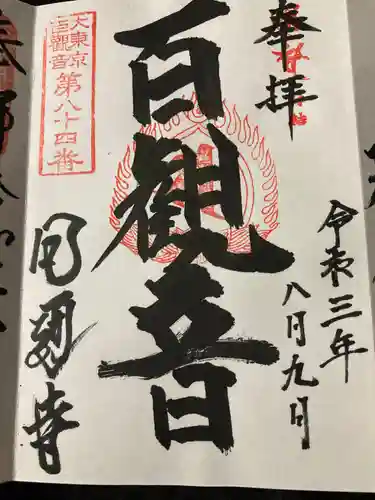 奉拝
令和三年
八月九日
百観音
大東京
百観音
第八十四番